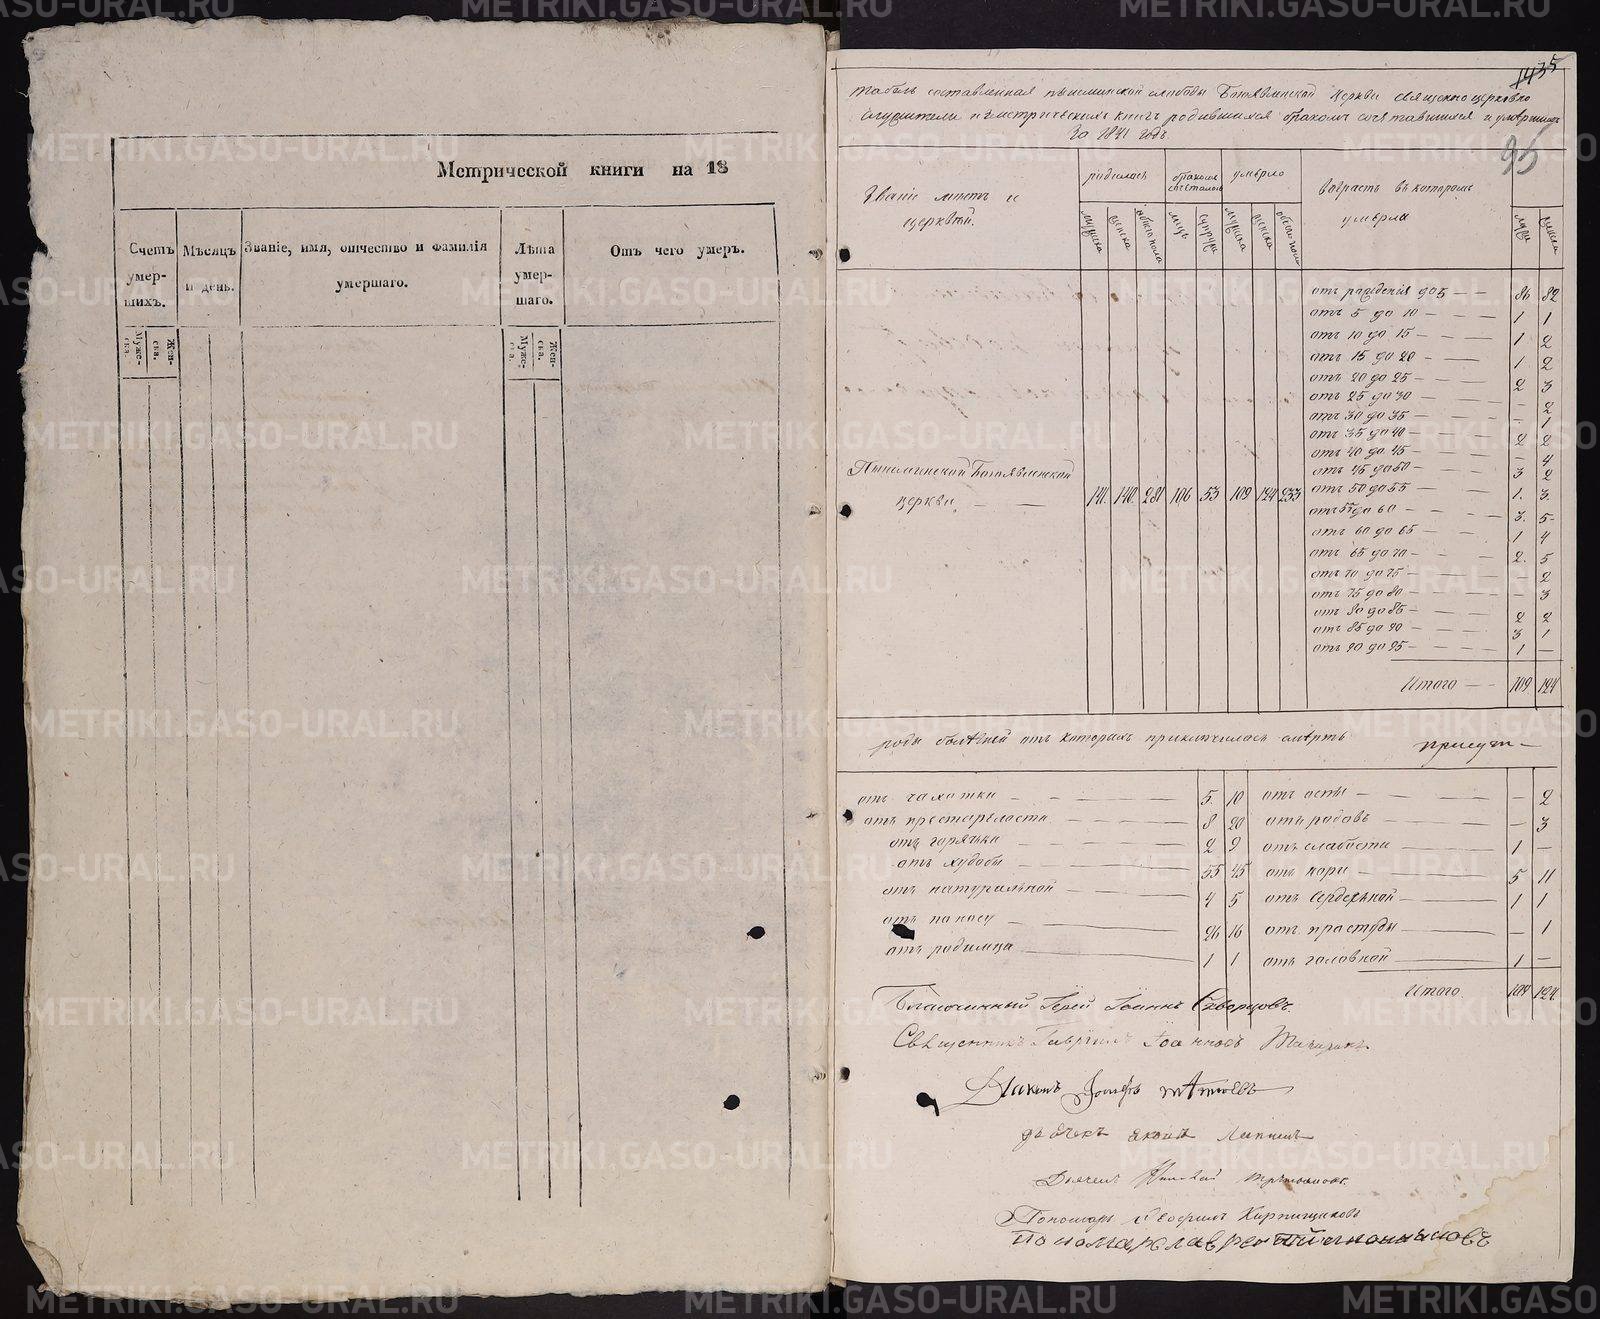 Метрической книги на 18
Счетъ умер-шихъ.
Муже-ска.
Жен-ска.
Мѣсяцъ и день.
Званіе, имя, отчество и фамилія умершаго.
Лѣта умер-шаго.
Муже-ска.
Жен-ска.
Отъ чего умеръ.
1435
95
Табель составленная Пышминской слободы Богоявленской церкви священноцерковно
служители изъ метрическихъ книгъ родившихся бракомъ сочетавшихся и умершихъ
за 1841 годъ
Званіе мѣстъ и церквей.
родилось
мужска
женска
обоего пола
бракомъ сочеталось
мужъ
супруги
умерло
мужска
женска
обоего пола
Возрастъ въ которомъ умерли
муж
женска
отъ рожденія до 5 — — 86 82
отъ 5 до 10 — 1 1
отъ 10 до 15 — 1 2
отъ 15 до 20 — 1 2
отъ 20 до 25 — 2 3
отъ 25 до 30 — — 2
отъ 30 до 35 — — 1
отъ 35 до 40 — 2 2
отъ 40 до 45 — — 4
отъ 45 до 50 — 3 2
отъ 50 до 55 — 1. 3.
отъ 55 до 60 — 3. 5
отъ 60 до 65 — 1 4
отъ 65 до 70 — 2. 5
отъ 70 до 75 — — 2
отъ 75 до 80 — — 3
отъ 80 до 85 — 2 2
отъ 85 до 90 — 3 1
отъ 90 до 95 — 1 —
Пышминской Богоявленской
церкви. — — 141 140 281 106 53 109 124 233
Итого — — 109 124
роды болѣзней отъ которыхъ приключилась смерть
отъ чахотки — 5. 10
отъ престарѣлости — 8 20
отъ горячки — 2 9
отъ худобы — 55 45
отъ натуральной — 4 5
отъ поносу — 26 16
отъ родимца — 1 1
отъ оспы — — 2
отъ родовъ — — 3
отъ слабости — 1 —
отъ кори — 5 11
отъ сердечной — 1 1
отъ простуды — — 1
отъ головной — 1 —
Итого 109 124
Благочинный Іерей Іоаннъ Скворцовъ.
Священникъ Гавріилъ Іоанновъ
Діаконъ Іосифъ
дьячекъ Яковъ Лапинъ
Дьячекъ Николай
Пономарь Кирпищиковъ
Пономарь Лаврентій
METRIKI.GASO-URAL.RU